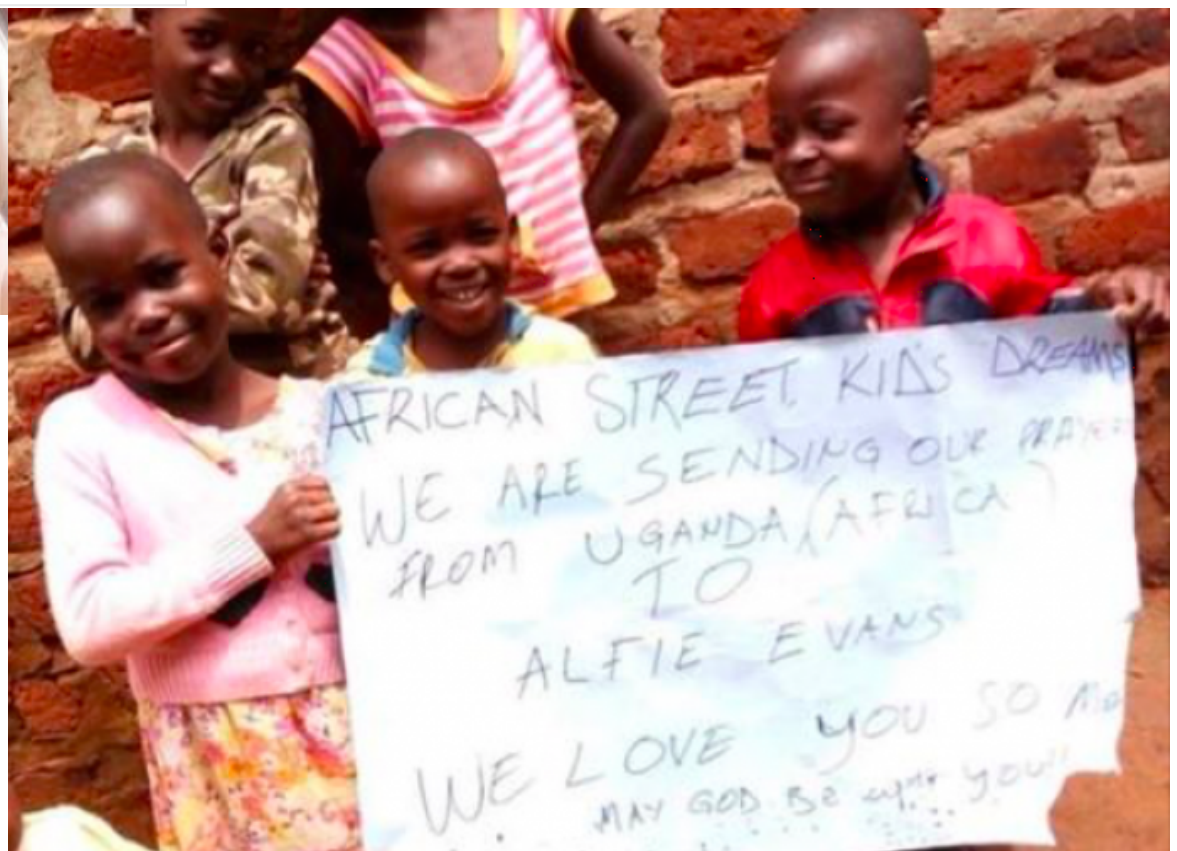 AFRICAN STREET KID'S DREAMS
WE ARE SENDING OUR PRAYER
FROM UGANDA, (AFRICA)
TO
ALFIE EVANS
WE LOVE YOU SO
MAY GOD BE YOU!!